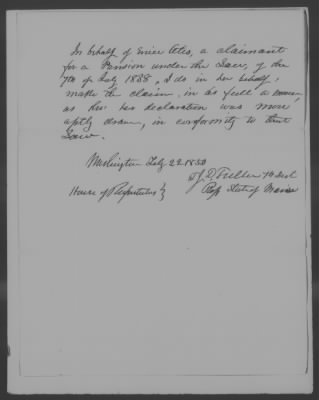 In behalf of Eunice Otis, a claimant
for a Pension under the Law, of the
7th of July 1838, I do in her behalf,
make the claim, in as full a manner,
as tho' her declaration was more
aptly drawn, in conformity to that
Law.
Washington July 22. 1850
T J D Fuller 7th Dist
House of Reps
Rep State of Maine